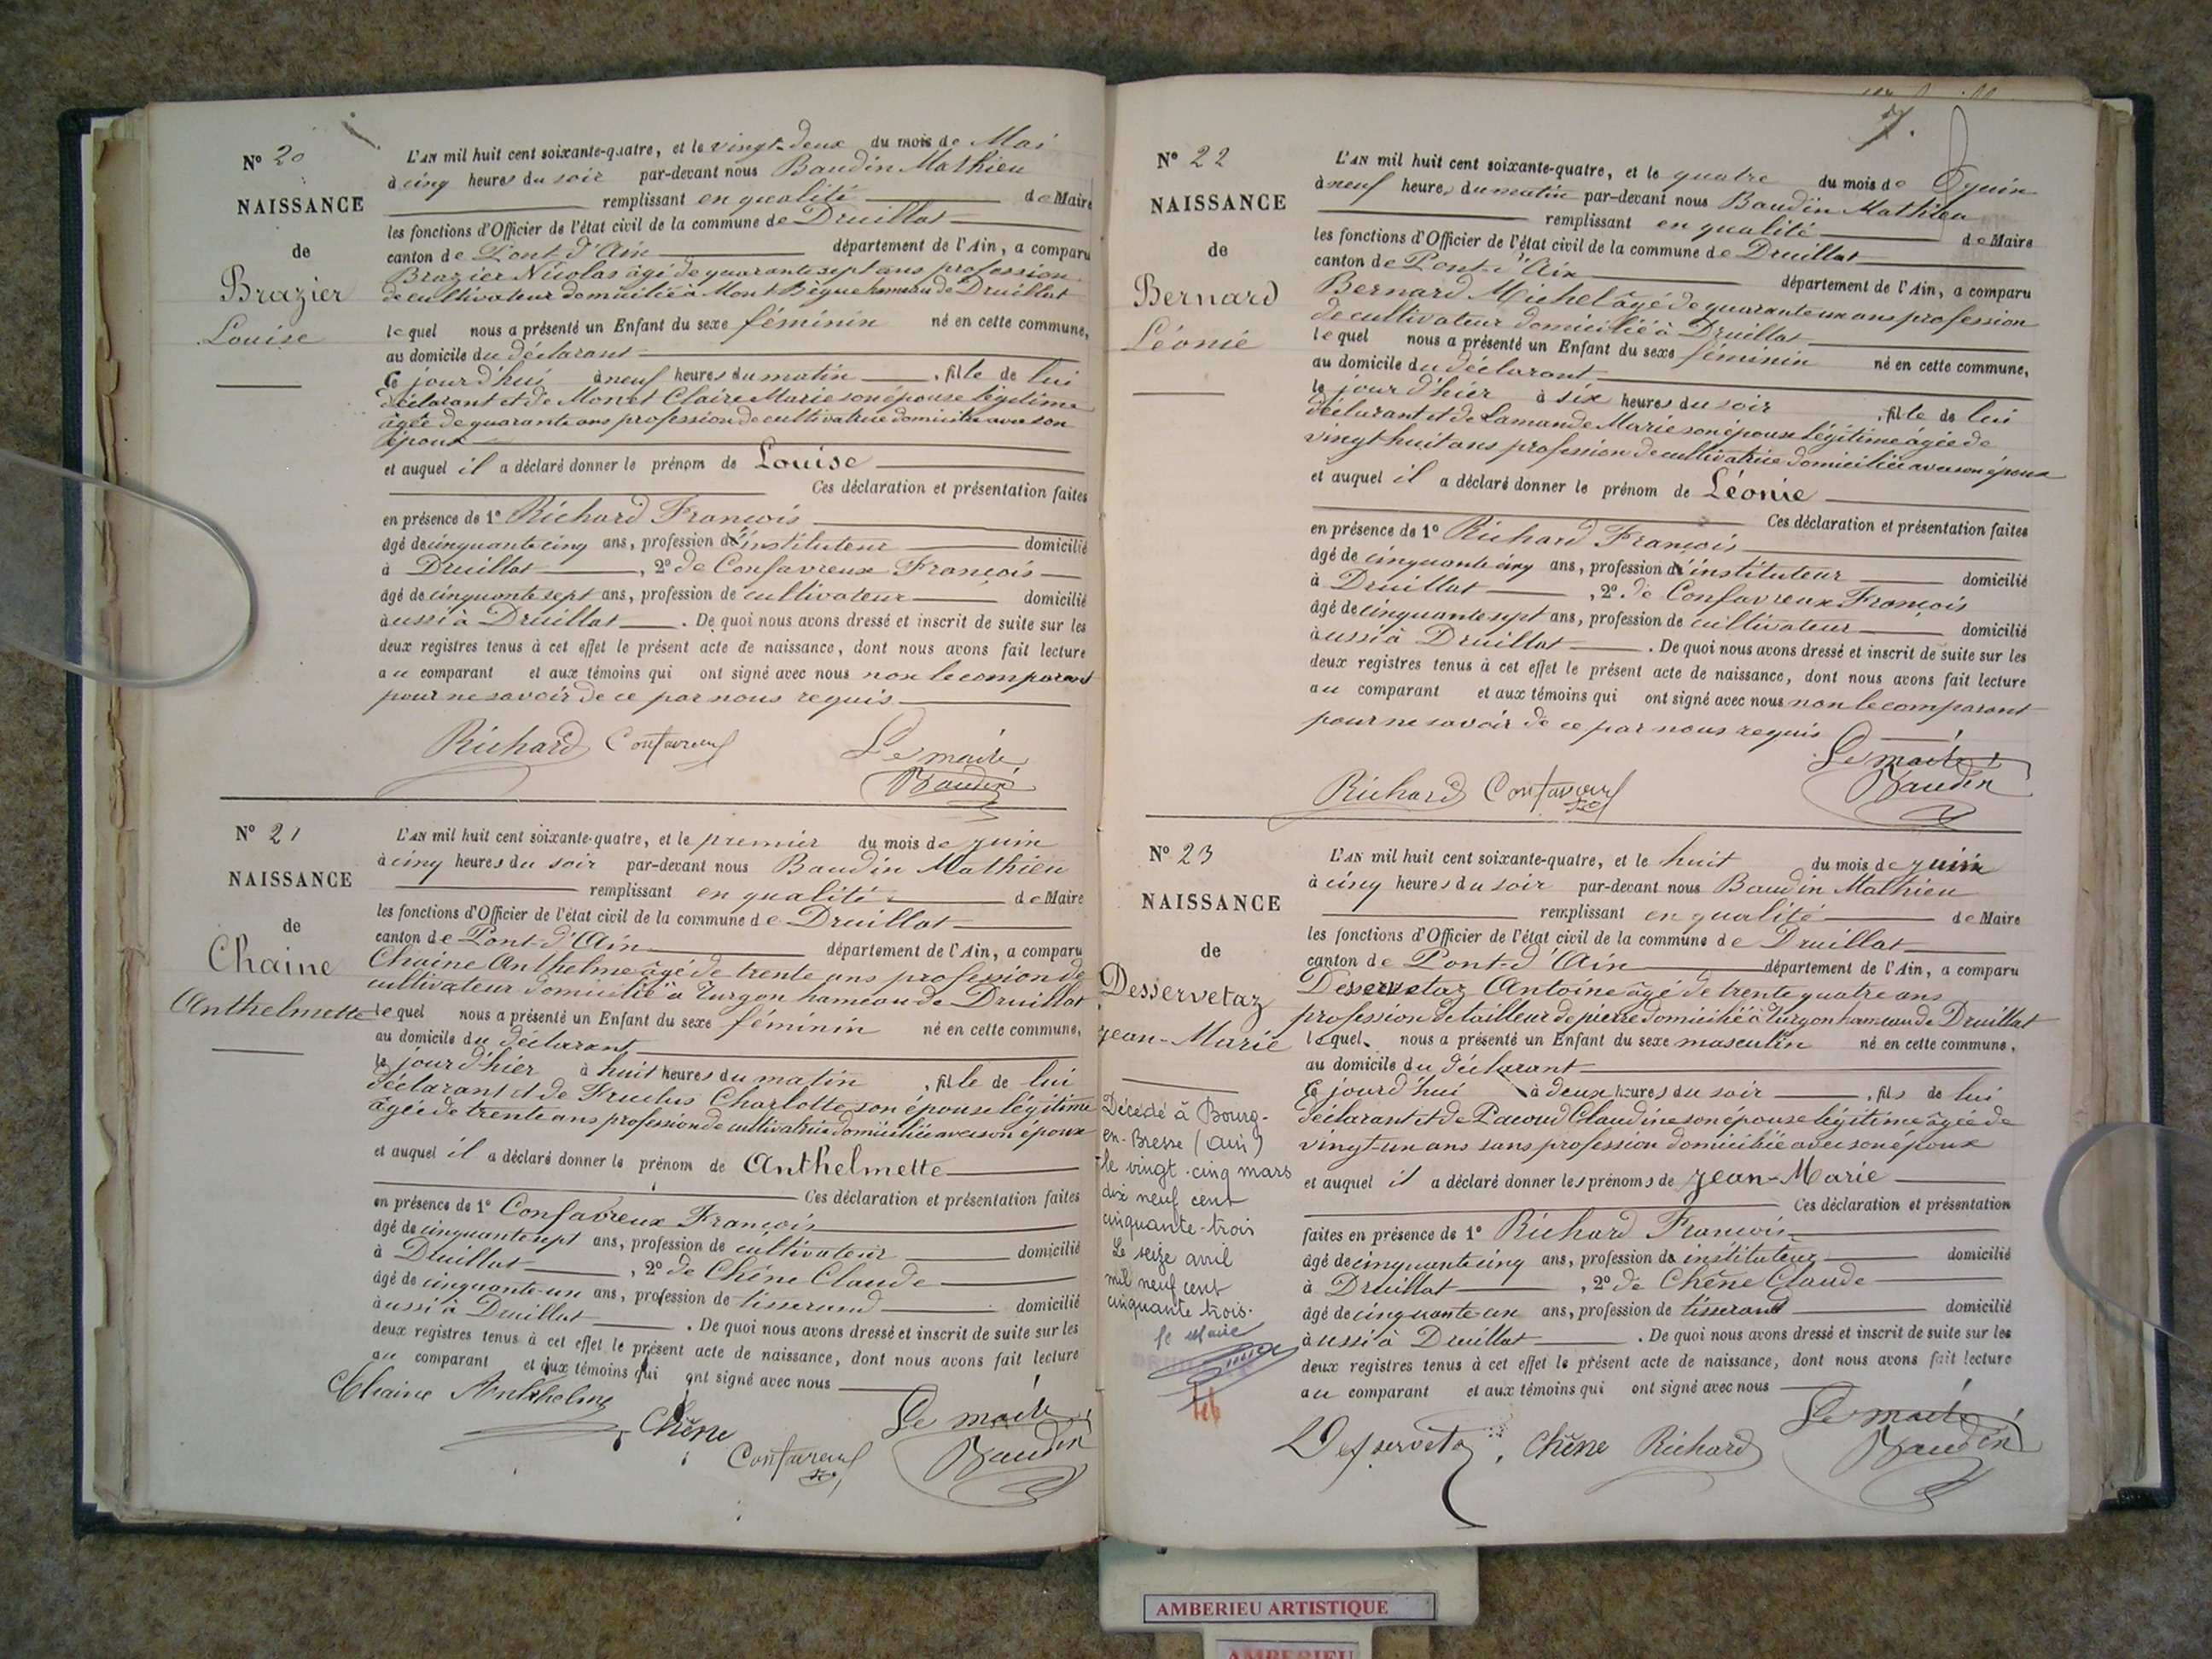 N° 20
NAISSANCE
de
Brazier
Louise
L'AN mil huit cent soixante-quatre, et le vingt-deux du mois de Mai
à cinq heures du soir par-devant nous Baudin Mathieu
remplissant en qualité de Maire
les fonctions d'Officier de l'état civil de la commune de Druillat
canton de Pont d'Ain département de l'Ain, a comparu
Brazier Nicolas âgé de quarante sept ans profession
de cultivateur domicilié à Mont Bègue hameau de Druillat
lequel nous a présenté un Enfant du sexe féminin né en cette commune,
au domicile du déclarant
Ce jourd'hui à neuf heures du matin , fille de lui
déclarant et de Claire Marie son épouse légitime
âgée de quarante ans profession de cultivatrice domiciliée avec son
époux
et auquel il a déclaré donner le prénom de Louise
Ces déclaration et présentation faites
en présence de 1° Richard François
âgé de cinquante cinq ans, profession d'instituteur domicilié
à Druillat , 2° de Confavreux François
âgé de cinquante sept ans, profession de cultivateur domicilié
aussi à Druillat . De quoi nous avons dressé et inscrit de suite sur les
deux registres tenus à cet effet le présent acte de naissance, dont nous avons fait lecture
au comparant et aux témoins qui ont signé avec nous non le comparant
pour ne savoir de ce par nous requis
Richard Confavreux Le maire
Baudin
N° 21
NAISSANCE
de
Chaine
Anthelmette
L'AN mil huit cent soixante-quatre, et le premier du mois de juin
à cinq heures du soir par-devant nous Baudin Mathieu
remplissant en qualité de Maire
les fonctions d'Officier de l'état civil de la commune de Druillat
canton de Pont-d'Ain département de l'Ain, a comparu
Chaine Anthelme âgé de trente ans profession de
cultivateur domicilié à Turgon hameau de Druillat
lequel nous a présenté un Enfant du sexe féminin né en cette commune,
au domicile du déclarant
le jour d'hier à huit heures du matin , fille de lui
déclarant et de Fructus Charlotte son épouse légitime
âgée de trente ans profession de cultivatrice domiciliée avec son époux
et auquel il a déclaré donner le prénom de Anthelmette
Ces déclaration et présentation faites
en présence de 1° Confavreux François
âgé de cinquante sept ans, profession de cultivateur domicilié
à Druillat , 2° de Chêne Claude
âgé de cinquante-un ans, profession de tisserand domicilié
aussi à Druillat . De quoi nous avons dressé et inscrit de suite sur les
deux registres tenus à cet effet le présent acte de naissance, dont nous avons fait lecture
au comparant et aux témoins qui ont signé avec nous
Chaine Anthelme Le maire
Chêne Confavreux Baudin
7.
N° 22
NAISSANCE
de
Bernard
Léonie
L'AN mil huit cent soixante-quatre, et le quatre du mois de Juin
à neuf heures du matin par-devant nous Baudin Mathieu
remplissant en qualité de Maire
les fonctions d'Officier de l'état civil de la commune de Druillat
canton de Pont-d'Ain département de l'Ain, a comparu
Bernard Michel âgé de quarante un ans profession
de cultivateur domicilié à Druillat
lequel nous a présenté un Enfant du sexe féminin né en cette commune,
au domicile du déclarant
le jour d'hier à six heures du soir , fille de lui
déclarant et de Lamande Marie son épouse légitime âgée de
vingt-huit ans profession de cultivatrice domiciliée avec son époux
et auquel il a déclaré donner le prénom de Léonie
Ces déclaration et présentation faites
en présence de 1° Richard François
âgé de cinquante cinq ans, profession d'instituteur domicilié
à Druillat , 2° de Confavreux François
âgé de cinquante sept ans, profession de cultivateur domicilié
aussi à Druillat . De quoi nous avons dressé et inscrit de suite sur les
deux registres tenus à cet effet le présent acte de naissance, dont nous avons fait lecture
au comparant et aux témoins qui ont signé avec nous non le comparant
pour ne savoir de ce par nous requis
Le maire
Richard Confavreux Baudin
N° 23
NAISSANCE
de
Desservetaz
Jean-Marie
Décédé à Bourg-
en-Bresse (Ain)
le vingt-cinq mars
dix neuf cent
cinquante-trois
Le seize avril
mil neuf cent
cinquante trois.
le Maire
L'AN mil huit cent soixante-quatre, et le huit du mois de juin
à cinq heures du soir par-devant nous Baudin Mathieu
remplissant en qualité de Maire
les fonctions d'Officier de l'état civil de la commune de Druillat
canton de Pont-d'Ain département de l'Ain, a comparu
Desservetaz Antoine âgé de trente quatre ans
profession de tailleur de pierre domicilié à Turgon hameau de Druillat
lequel nous a présenté un Enfant du sexe masculin né en cette commune,
au domicile du déclarant
Ce jourd'hui à deux heures du soir , fils de lui
déclarant et de Pacoud Claudine son épouse légitime âgée de
vingt-un ans sans profession domiciliée avec son époux
et auquel il a déclaré donner les prénoms de Jean-Marie
Ces déclaration et présentation
faites en présence de 1° Richard François
âgé de cinquante cinq ans, profession de instituteur domicilié
à Druillat , 2° de Chêne Claude
âgé de cinquante-un ans, profession de tisserand domicilié
aussi à Druillat . De quoi nous avons dressé et inscrit de suite sur les
deux registres tenus à cet effet le présent acte de naissance, dont nous avons fait lecture
au comparant et aux témoins qui ont signé avec nous
Le maire
Desservetaz Chêne Richard Baudin
AMBERIEU ARTISTIQUE
AMBERIEU